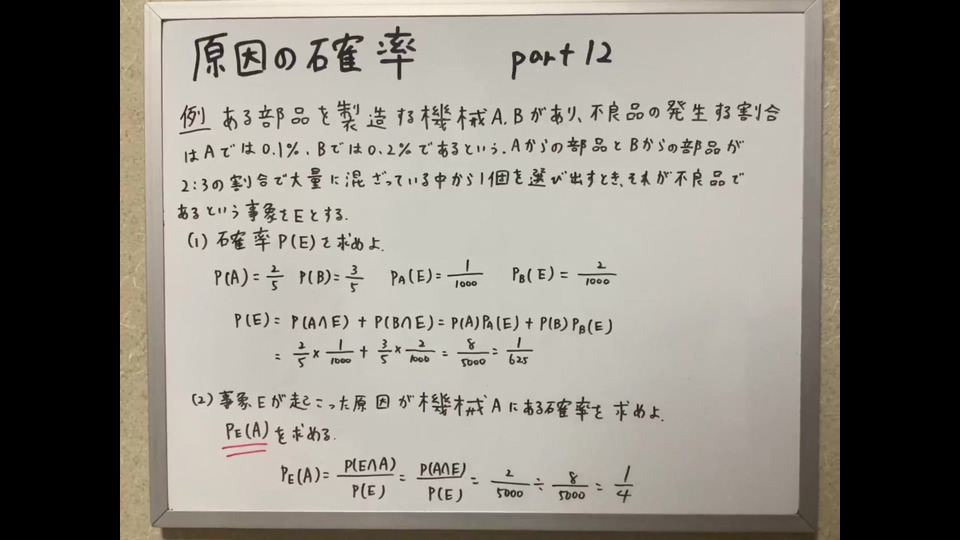 原因の確率 part 12
例 ある部品を製造する機械A,Bがあり、不良品の発生する割合
はAでは0.1%、Bでは0.2%であるという.Aからの部品とBからの部品が
2:3の割合で大量に混ざっている中から1個を選び出すとき、それが不良品で
あるという事象をEとする.
(1) 確率P(E)を求めよ.
P(A)=2/5 P(B)=3/5 PA(E)=1/1000 PB(E)=2/1000
P(E)=P(A∩E)+P(B∩E)=P(A)PA(E)+P(B)PB(E)
=2/5×1/1000+3/5×2/1000=8/5000=1/625
(2) 事象Eが起こった原因が機械Aにある確率を求めよ.
PE(A)を求める.
PE(A)=P(E∩A)/P(E)=P(A∩E)/P(E)=2/5000÷8/5000=1/4